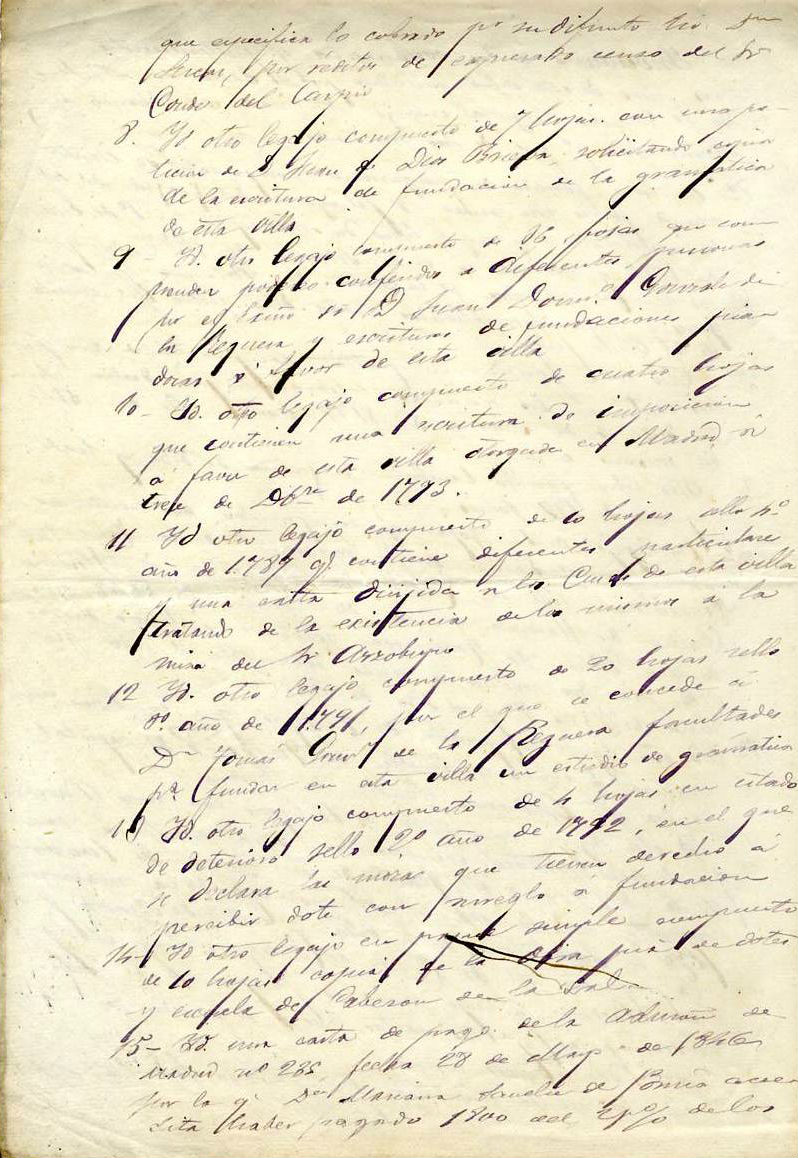 que especifica lo cobrado pr su difunto tio Dn
Juan, por réditos de expresado censo del Sr
Conde del Carpio
8. Yd otro legajo compuesto de 7 hojas con una pe-
ticion de D Juan de Dios solicitando copia
de la escritura de fundacion de la gramatica
de esta villa
9 - Yd. otro legajo compuesto de 16 fojas que com
prenden poderes conferidos a diferentes personas
por el Exmo Sr D Juan Domo Gonzalez de
la Reguera y escrituras de fundaciones pia
dosas á favor de esta villa
10 - Yd. otro legajo compuesto de cuatro hojas
que contienen una escritura de imposicion
á favor de esta villa otorgada en Madrid á
trece de Dbre de 1773.
11 Yd otro legajo compuesto de 10 hojas sello 4º
año de 1.787 q contiene diferentes particulares
y una carta dirijida a los Curas de esta villa
tratando de la existencia de los mismos a la
misa del Sr Arzobispo
12 Yd. otro legajo compuesto de 20 hojas sello
año de 1.791, por el que se concede á
Dn Tomás de la Reguera facultades
pa fundar en esta villa un estudio de gramatica
13 Yd. otro legajo compuesto de 4 hojas en estado
de deterioro sello 2º año de 1792, en el que
se declara las mozas que tienen derecho á
percibir dote con arreglo a fundacion
14 - Yd otro legajo en papel simple compuesto
de 10 hojas copia de la Obra pia de dotes
y escuela de Cabezon de la Sal
15 - Yd. una carta de pago de la Admon de
Madrid nº 235 fecha 28 de Mayo de 1846
por la q Da Mariana de acre
dita haber pagado 1800 del 2 p% de los